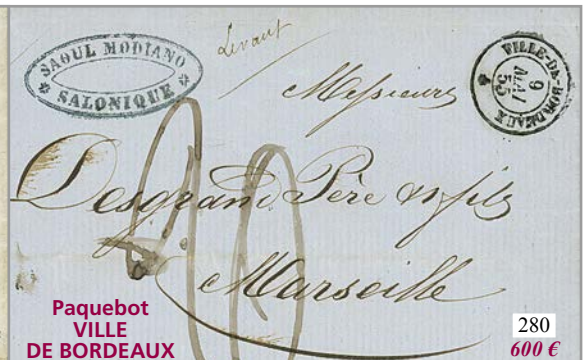 SAOUL MODIANO
SALONIQUE
Levant
VILLE-DE-BORDEAUX
9
MAI
55
Messieurs
Desgrand Père & fils
Marseille
20
Paquebot
VILLE
DE BORDEAUX
280
600 €